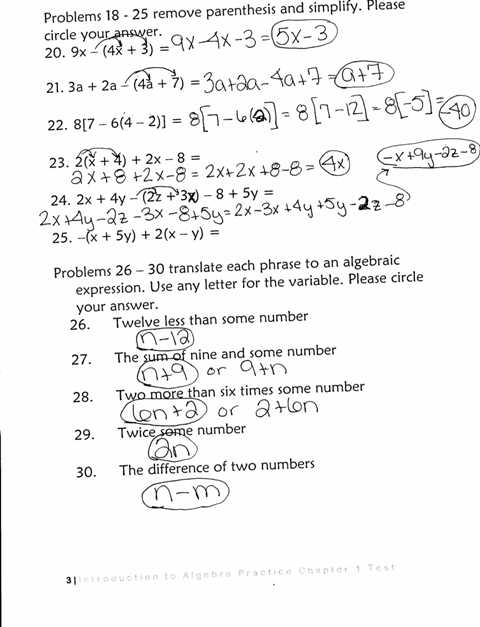 Problems 18 - 25 remove parenthesis and simplify. Please
circle your answer.
20. 9x – (4x + 3) = 9x-4x-3 = 5x-3
21. 3a + 2a – (4a + 7) = 3a+2a-4a+7 = a+7
22. 8[7 – 6(4 – 2)] = 8[7-6(2)] = 8[7-12] = 8[-5] = -40
23. 2(x + 4) + 2x – 8 =
2x+8+2x-8 = 2x+2x+8-8 = 4x
-x+9y-2z-8
24. 2x + 4y – (2z + 3x) – 8 + 5y =
2x+4y-2z-3x-8+5y = 2x-3x+4y+5y-2z-8
25. –(x + 5y) + 2(x – y) =
Problems 26 – 30 translate each phrase to an algebraic
expression. Use any letter for the variable. Please circle
your answer.
26. Twelve less than some number
n-12
27. The sum of nine and some number
n+9 or 9+n
28. Two more than six times some number
6n+2 or 2+6n
29. Twice some number
2n
30. The difference of two numbers
n-m
3| Introduction to Algebra Practice Chapter 1 Test